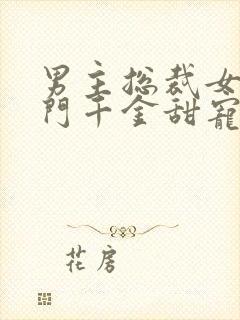 男主总裁女
門千金甜寵
花房